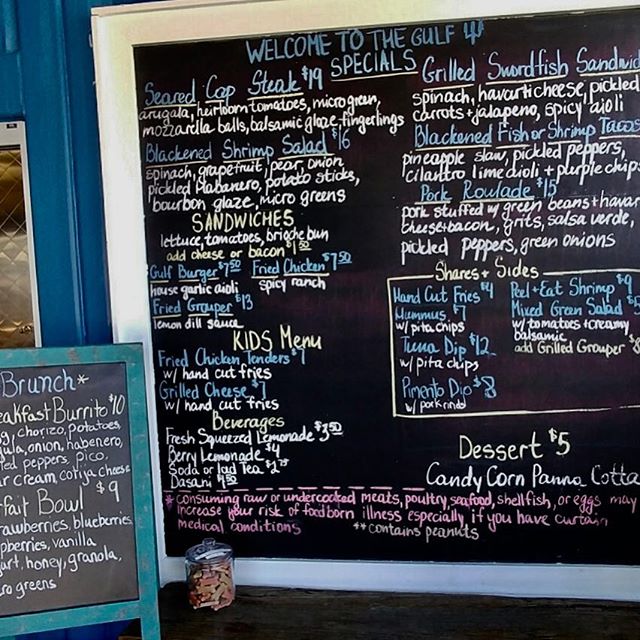 WELCOME TO THE GULF
SPECIALS
Seared Cap Steak $19
arugala, heirloom tomatoes, micro green,
mozzarella balls, balsamic glaze, fingerlings
Blackened Shrimp Salad $16
spinach, grapefruit, pear, onion
pickled Habanero, potato sticks,
bourbon glaze, micro greens
SANDWICHES
lettuce, tomatoes, brioche bun
add cheese or bacon $1.50
Gulf Burger $7.50 Fried Chicken $7.50
house garlic aioli spicy ranch
Fried Grouper $13
lemon dill sauce
KIDS Menu
Fried Chicken Tenders $7
w/ hand cut fries
Grilled Cheese $7
w/ hand cut fries
Beverages
Fresh Squeezed Lemonade $3.50
Berry Lemonade $4
Soda or Iced Tea $2.75
Dasani
Grilled Swordfish Sandwi
spinach, havarti cheese, pickled
carrots + jalapeno, spicy aioli
Blackened Fish or Shrimp Tacos
pineapple slaw, pickled peppers,
cilantro lime aioli + purple chip
Pork Roulade $15
pork stuffed w/ green beans + havar
cheese + bacon, grits, salsa verde,
pickled peppers, green onions
Shares + Sides
Hand Cut Fries $4
Hummus $7
w/ pita chips
Tuna Dip $12
w/ pita chips
Pimento Dip $8
w/ pork rinds
Peel + Eat Shrimp $9
Mixed Green Salad $5
w/ tomatoes + creamy
balsamic
add Grilled Grouper $8
Dessert $5
Candy Corn Panna Cotta
* consuming raw or undercooked meats, poultry, seafood, shellfish, or eggs may
increase your risk of foodborn illness especially if you have curtain
medical conditions **contains peanuts
Brunch*
eakfast Burrito $10
g, chorizo, potatoes,
ula, onion, habenero,
led peppers, pico,
ur cream, cotija cheese
fait Bowl $9
rawberries, blueberries,
pberries, vanilla
urt, honey, granola,
ro greens